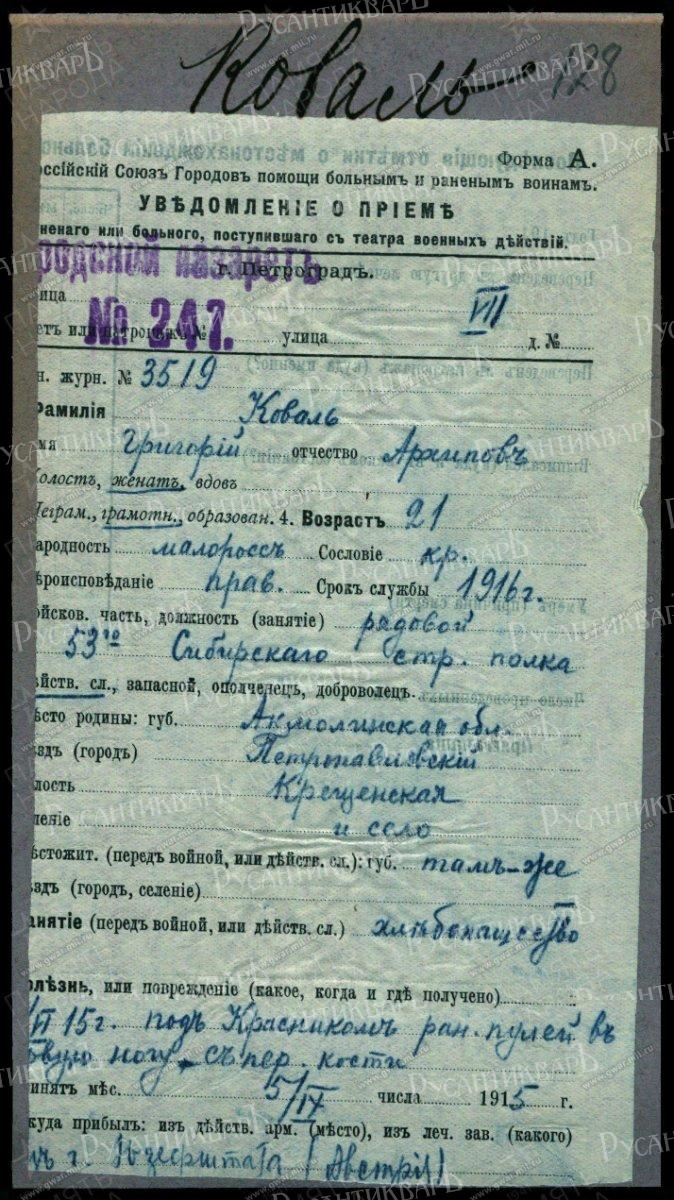 Коваль 128
Форма А.
оссійскій Союзъ Городовъ помощи больнымъ и раненымъ воинамъ.
УВѢДОМЛЕНІЕ О ПРІЕМѢ
ненаго или больного, поступившаго съ театра военныхъ дѣйствій.
родской лазаретъ
г. Петроградъ.
ица VII
№ 247.
етъ или патронажъ № улица д. №
н. журн. № 3519
Фамилія Коваль
мя Григорій отчество Архиповъ
Холостъ, женатъ, вдовъ
Неграм., грамотн., образован. 4. Возрастъ 21
ародность малороссъ Сословіе кр.
ѣроисповѣданіе прав. Срокъ службы 1916 г.
ойсков. часть, должность (занятіе) рядовой
53го Сибирскаго стр. полка
ѣйств. сл., запасной, ополченецъ, доброволецъ.
ѣсто родины: губ. Акмолинская обл.
ѣздъ (городъ) Петропавловскій
лость Крещенская
леніе и село
ѣстожит. (передъ войной, или дѣйств. сл.): губ. тамъ-же
ѣздъ (городъ, селеніе)
анятіе (передъ войной, или дѣйств. сл.) хлѣбопашество
олѣзнь, или поврежденіе (какое, когда и гдѣ получено)
15 г. подъ Красникомъ ран. пулей въ
ногу съ пер. кости
ринятъ мѣс. 5/IX числа 1915 г.
куда прибылъ: изъ дѣйств. арм. (мѣсто), изъ леч. зав. (какого)
г. (Австріи)